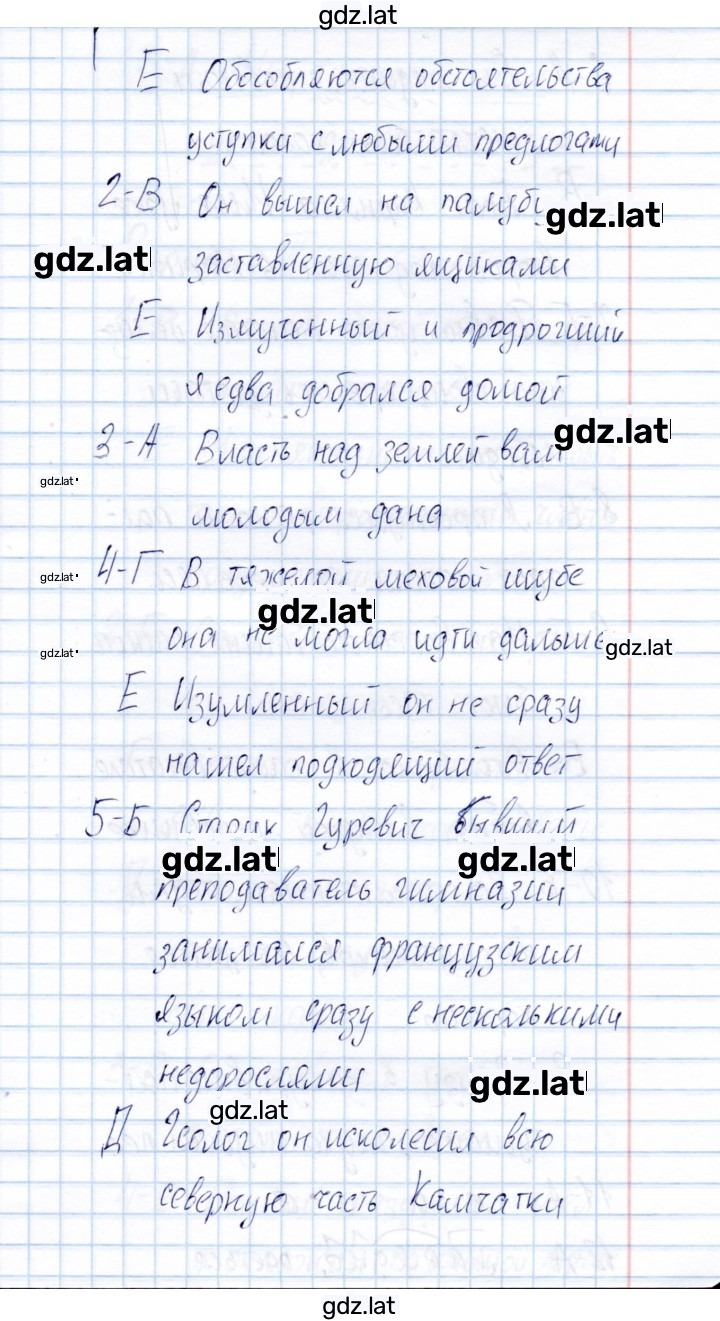 gdz.lat
Е Обособляются обстоятельства
уступки с любыми предлогами
2-В Он вышел на палубу
gdz.lat
gdz.lat
заставленную ящиками
Е Измученный и продрогший
я едва добрался домой
gdz.lat
3-А Власть над землей вам
gdz.lat
молодым дана
4-Г В тяжелой меховой шубе
gdz.lat
gdz.lat
она не могла идти дальше
gdz.lat
gdz.lat
Е Изумленный он не сразу
нашел подходящий ответ
5-Б Старик Гуревич бывший
gdz.lat gdz.lat
преподаватель гимназии
занимался французским
языком сразу с несколькими
недорослями
gdz.lat
gdz.lat
Д Геолог он исколесил всю
северную часть Камчатки
gdz.lat